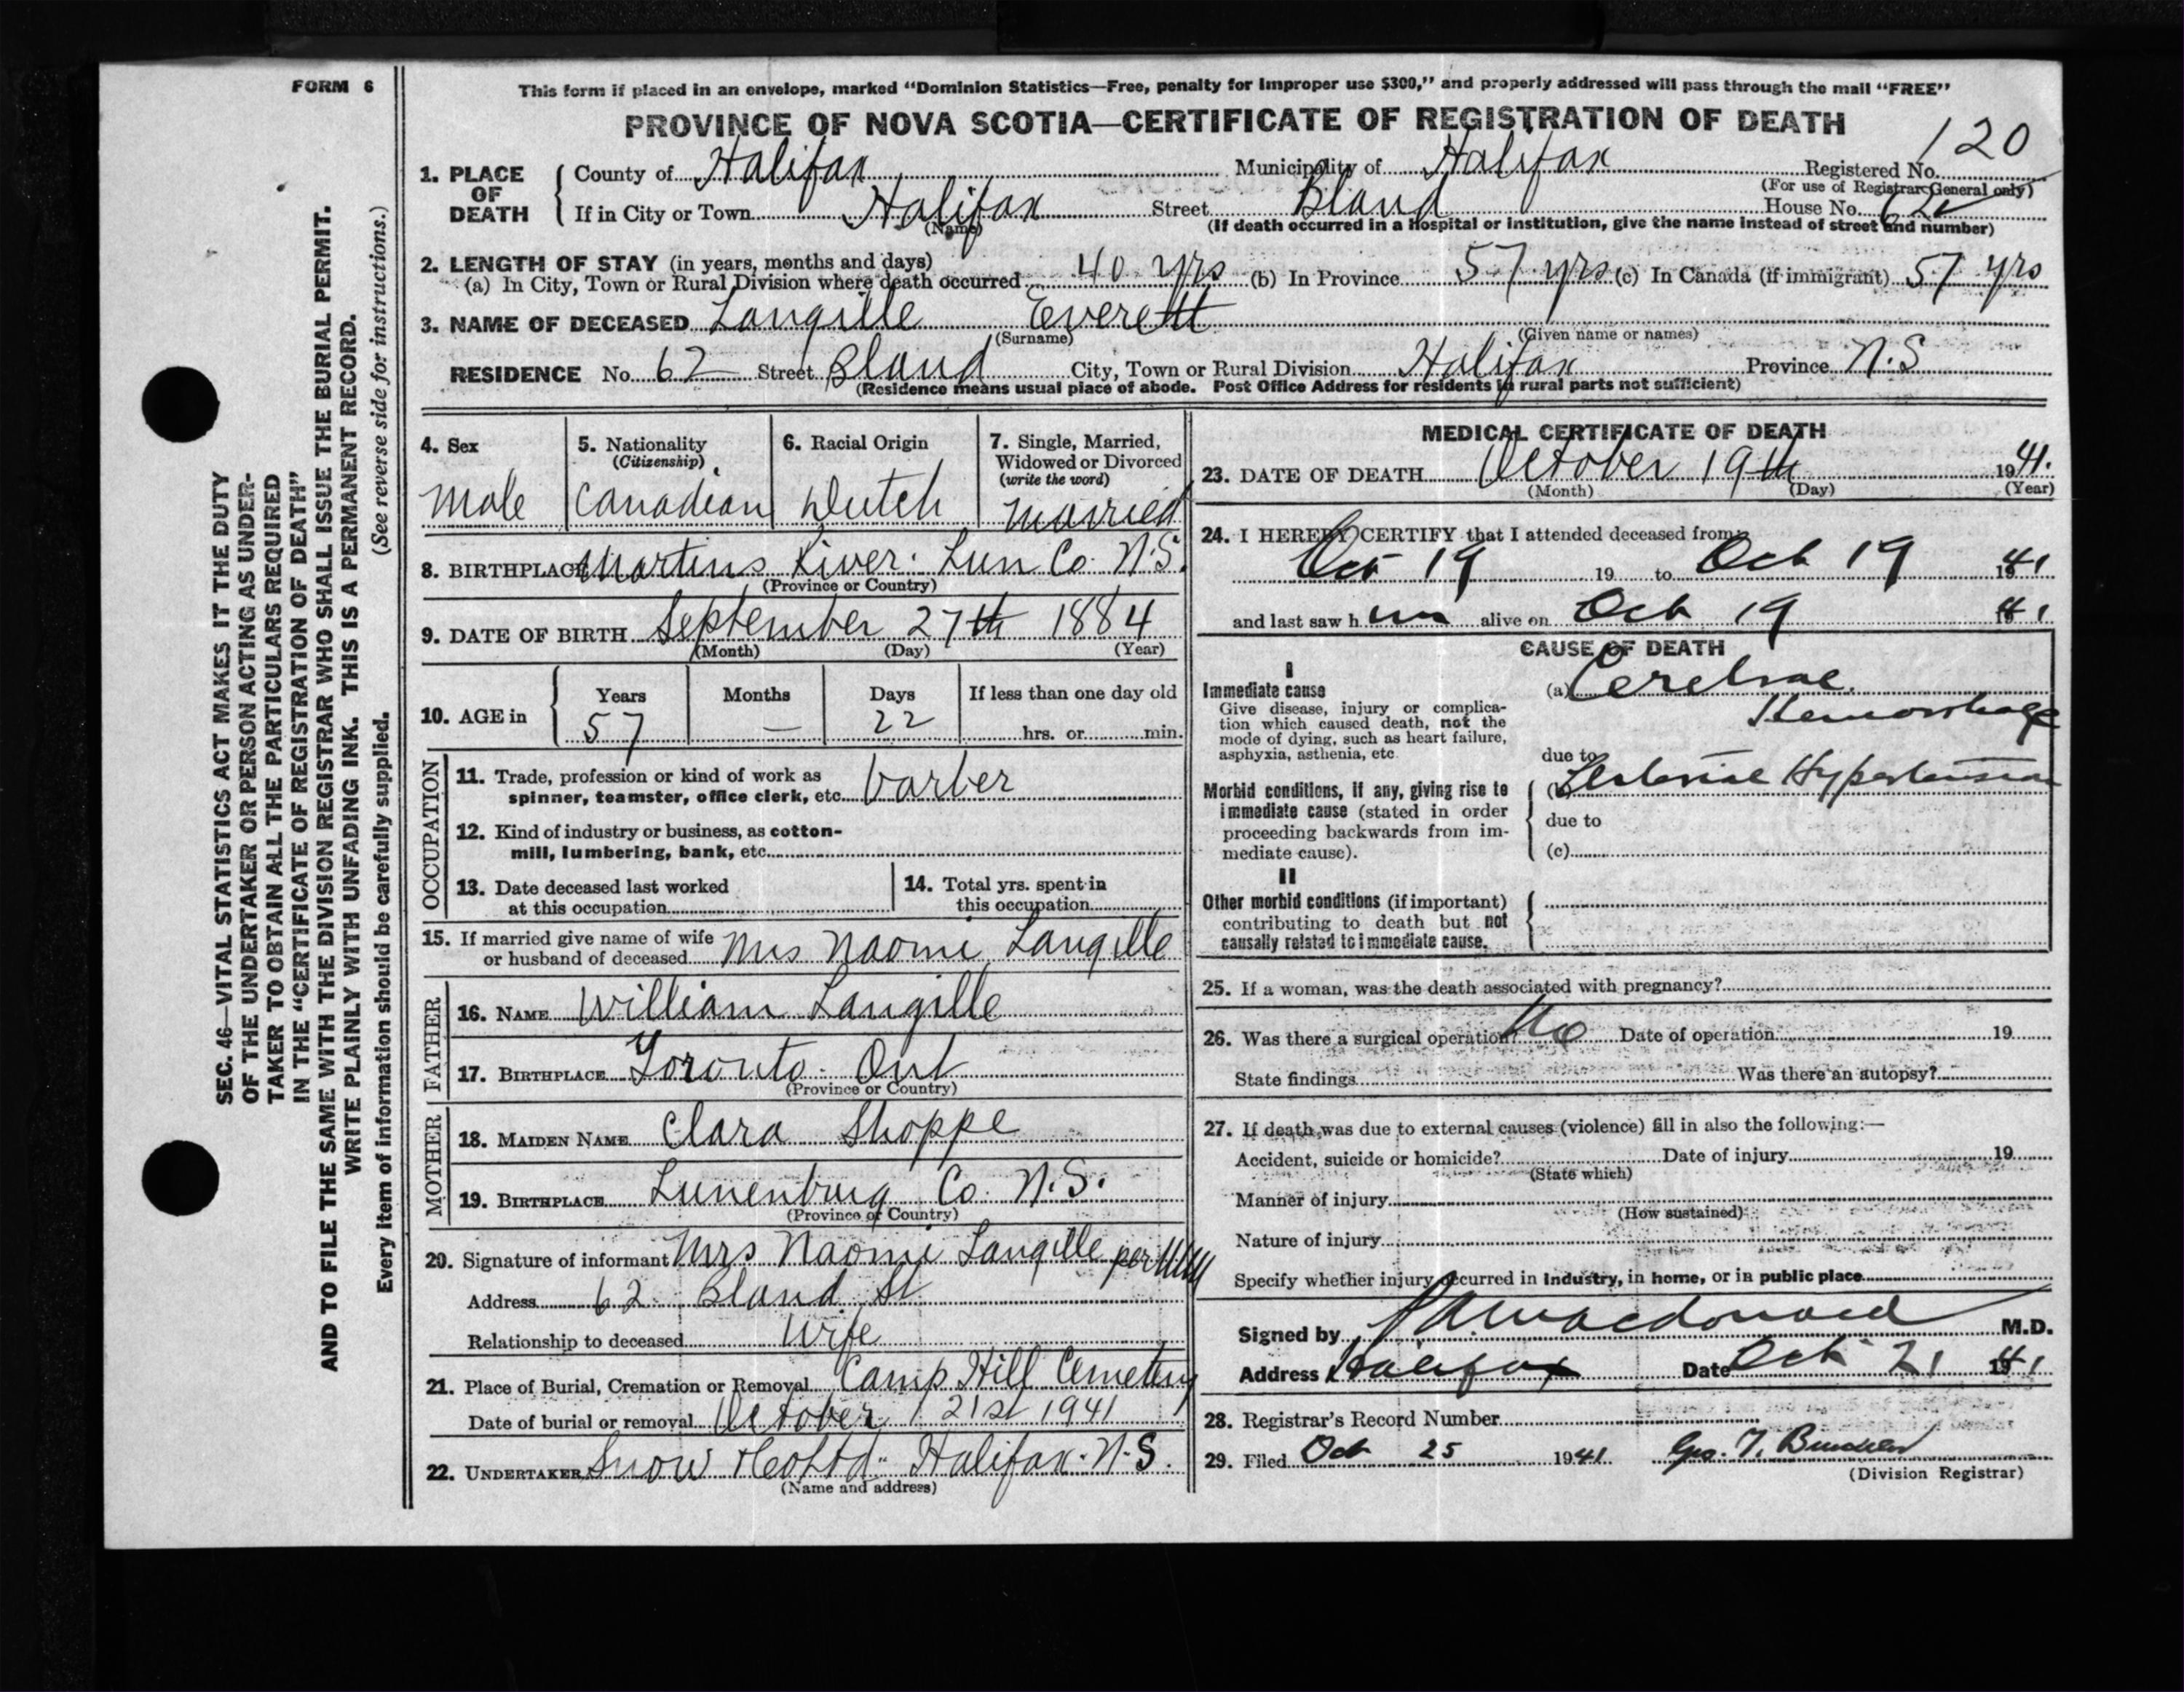 FORM 6
This form if placed in an envelope, marked "Dominion Statistics—Free, penalty for improper use $300," and properly addressed will pass through the mail "FREE"
PROVINCE OF NOVA SCOTIA—CERTIFICATE OF REGISTRATION OF DEATH
120
1. PLACE OF DEATH { County of Halifax Municipality of Halifax Registered No.
(For use of Registrar General only)
If in City or Town Halifax Street Bland House No. 62
(Name) (If death occurred in a hospital or institution, give the name instead of street and number)
2. LENGTH OF STAY (in years, months and days)
(a) In City, Town or Rural Division where death occurred 40 yrs (b) In Province 57 yrs (c) In Canada (if immigrant) 57 yrs
3. NAME OF DECEASED Langille Everett
(Surname) (Given name or names)
RESIDENCE No. 62 Street Bland City, Town or Rural Division Halifax Province N.S
(Residence means usual place of abode. Post Office Address for residents in rural parts not sufficient)
4. Sex
Male
5. Nationality
(Citizenship)
Canadian
6. Racial Origin
Dutch
7. Single, Married,
Widowed or Divorced
(write the word)
Married
8. BIRTHPLACE Martins River. Lun Co. N.S.
(Province or Country)
9. DATE OF BIRTH September 27th 1884
(Month) (Day) (Year)
10. AGE in { Years Months Days If less than one day old
57 — 22 hrs. or min.
OCCUPATION
11. Trade, profession or kind of work as
spinner, teamster, office clerk, etc. barber
12. Kind of industry or business, as cotton-
mill, lumbering, bank, etc.
13. Date deceased last worked
at this occupation
14. Total yrs. spent in
this occupation
15. If married give name of wife
or husband of deceased Mrs Naomi Langille
FATHER
16. NAME William Langille
17. BIRTHPLACE Toronto. Ont
(Province or Country)
MOTHER
18. MAIDEN NAME Clara Shoppe
19. BIRTHPLACE Lunenburg Co. N.S.
(Province or Country)
20. Signature of informant Mrs Naomi Langille per
Address 62 Bland St
Relationship to deceased Wife
21. Place of Burial, Cremation or Removal Camp Hill Cemetery
Date of burial or removal October 21st 1941
22. UNDERTAKER Snow & Co Ltd. Halifax. N.S.
(Name and address)
MEDICAL CERTIFICATE OF DEATH
23. DATE OF DEATH October 19th 1941.
(Month) (Day) (Year)
24. I HEREBY CERTIFY that I attended deceased from
Oct 19 19 to Oct 19 1941
and last saw him alive on Oct 19 1941
CAUSE OF DEATH
I
Immediate cause
Give disease, injury or complica-
tion which caused death, not the
mode of dying, such as heart failure,
asphyxia, asthenia, etc.
(a) Cerebral
Hemorrhage
due to
Morbid conditions, if any, giving rise to
immediate cause (stated in order
proceeding backwards from im-
mediate cause).
(b) Arterial Hypertension
due to
(c)
II
Other morbid conditions (if important)
contributing to death but not
causally related to immediate cause.
25. If a woman, was the death associated with pregnancy?
26. Was there a surgical operation? No Date of operation 19
State findings Was there an autopsy?
27. If death was due to external causes (violence) fill in also the following:—
Accident, suicide or homicide? Date of injury 19
(State which)
Manner of injury
(How sustained)
Nature of injury
Specify whether injury occurred in industry, in home, or in public place
Signed by Macdonald M.D.
Address Halifax Date Oct 21 1941
28. Registrar's Record Number
29. Filed Oct 25 1941 Geo. T.
(Division Registrar)
SEC. 46—VITAL STATISTICS ACT MAKES IT THE DUTY
OF THE UNDERTAKER OR PERSON ACTING AS UNDER-
TAKER TO OBTAIN ALL THE PARTICULARS REQUIRED
IN THE "CERTIFICATE OF REGISTRATION OF DEATH"
AND TO FILE THE SAME WITH THE DIVISION REGISTRAR WHO SHALL ISSUE THE BURIAL PERMIT.
WRITE PLAINLY WITH UNFADING INK. THIS IS A PERMANENT RECORD.
(See reverse side for instructions.)
Every item of information should be carefully supplied.